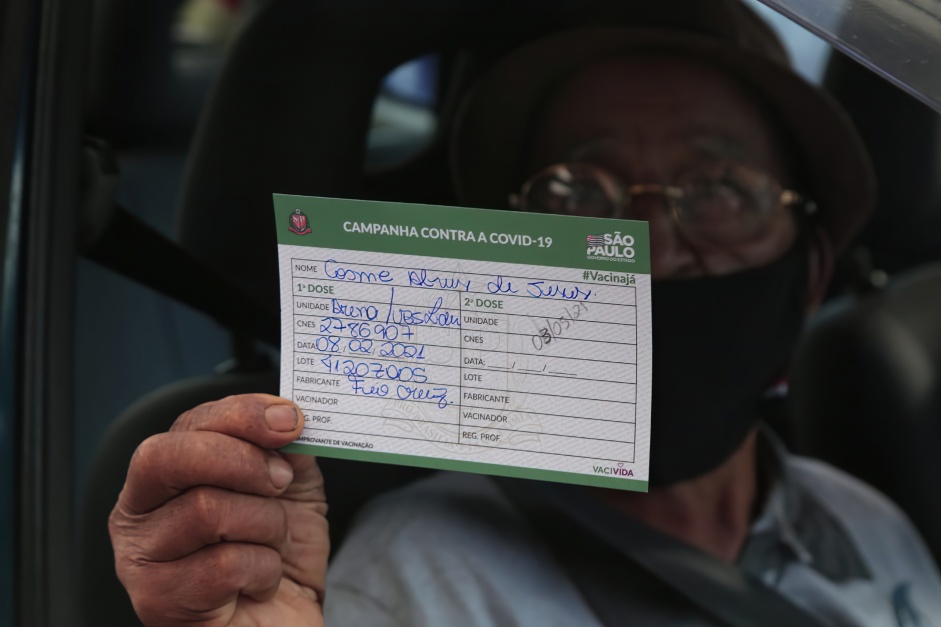 CAMPANHA CONTRA A COVID-19
SÃO
PAULO
GOVERNO DO ESTADO
#Vacinajá
NOME Cosme de Jesus
1ª DOSE
UNIDADE
CNES 2786907
DATA 08/02/2021
LOTE 41207005
FABRICANTE Fio Cruz
VACINADOR
REG. PROF.
2ª DOSE
UNIDADE
03/05/21
CNES
DATA: __/__/__
LOTE
FABRICANTE
VACINADOR
REG. PROF
COMPROVANTE DE VACINAÇÃO
VACIVIDA